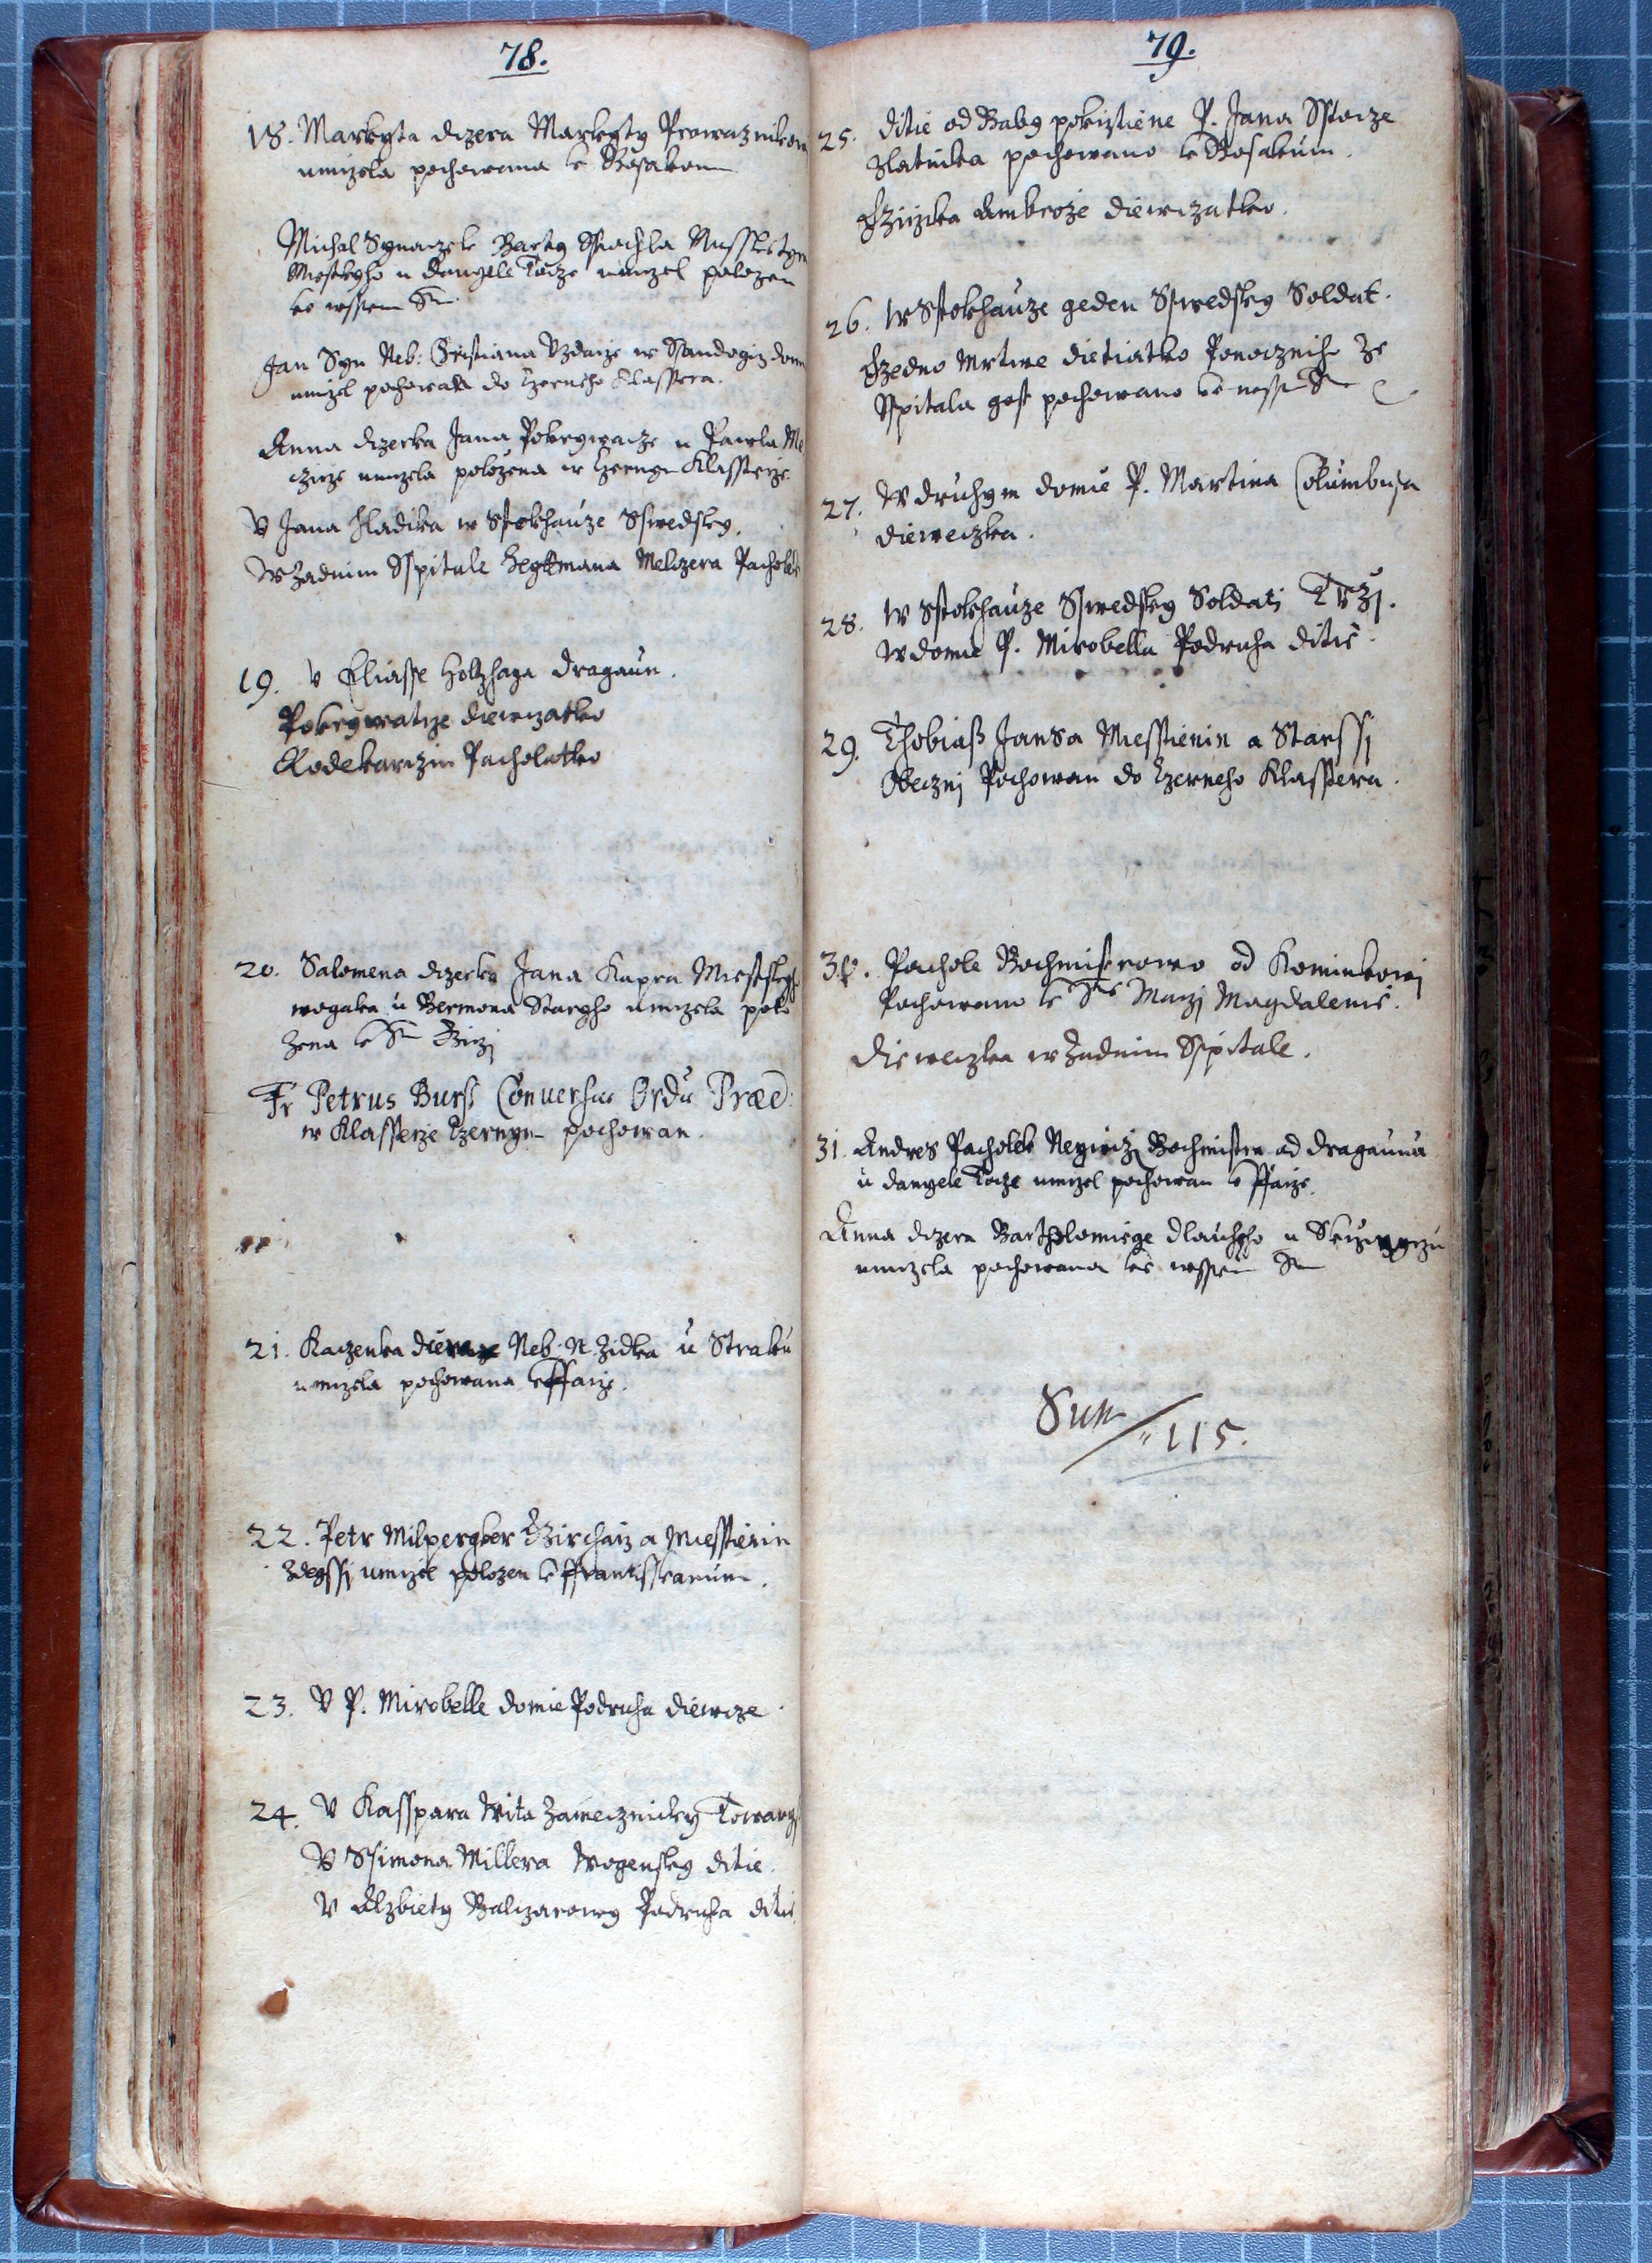 78.
18. Markyta dczera Markyty Prowaznikow
umrzela pochowana k Bosakom
Michal Synaczek Barty
Mestskyho u Danyele Tocze umrzel polozen
ke wssem Sm
Jan Syn Neb: Cristiana Uzdarze w domu
umrzel pochowan do Czerneho Klasstera.
Anna dczerka Jana Pokrywacze u Pawla
umrzela polozena w Czernym Klassterze.
V Jana Hladika w Stokhauze Sswedsky.
W Zadnim Sspitale Heytmana Melczera Pacholek
19. V Eliasse Holzhaga dragaun.
Pokrywacze diewczatko
Pacholatko
20. Salomena dczerka Jana Kapra Mestskyho
wogaka u Bermona Stareho umrzela polo
zena k Sm Girzj
Fr Petrus Burss Conuersus Ordi Præd:
w Klassterze Czernym pochowan.
21. Kaczenka Neb. N. Zidka u Straku
umrzela pochowana k Ffarze.
22. Petr Milpergker a Miesstienin
Zdegssj umrzel polozen k Ffrantisskanum.
23. V P. Mirobelle domie Podruha diewcze
24. V Kasspara Wita Zamecznicky Towarys
V Ssimona Millera Wogensky ditie.
V Alzbiety Balczarowy Podruha ditie.
79.
25. ditie od Baby pokrztiene P. Jana
Zlatnika pochowano k Bosakum.
Ambroze diewczatko.
26. W Sstokhauze geden Sswedsky Soldat.
Gedno Mrtwe dietiatko Ponoczniho ze
Sspitala gest pochowano ke wssem Sm
27. W druhym domie P. Martina Columbusa
dieweczka.
28. W Sstokhauze Sswedsky Soldati Trzj.
W domie P. Mirobella Podruha ditie.
29. Thobiass Jansa Miesstienin a Starssj
Obecznj Pochowan do Czerneho Klasstera.
30. Pachole Rochmistrowo od Kominkowi
Pochowano k Ste Marzj Magdalenie.
dieweczka w Zadnim Sspitale.
31. Andres Pacholek Rochmistra od Dragaunu
u Danyele Tocze umrzel pochowan k Ffarze.
Anna dczera Bartholomiege Dlauhyho u
umrzela pochowana ke wssem Sm
Sum
115.